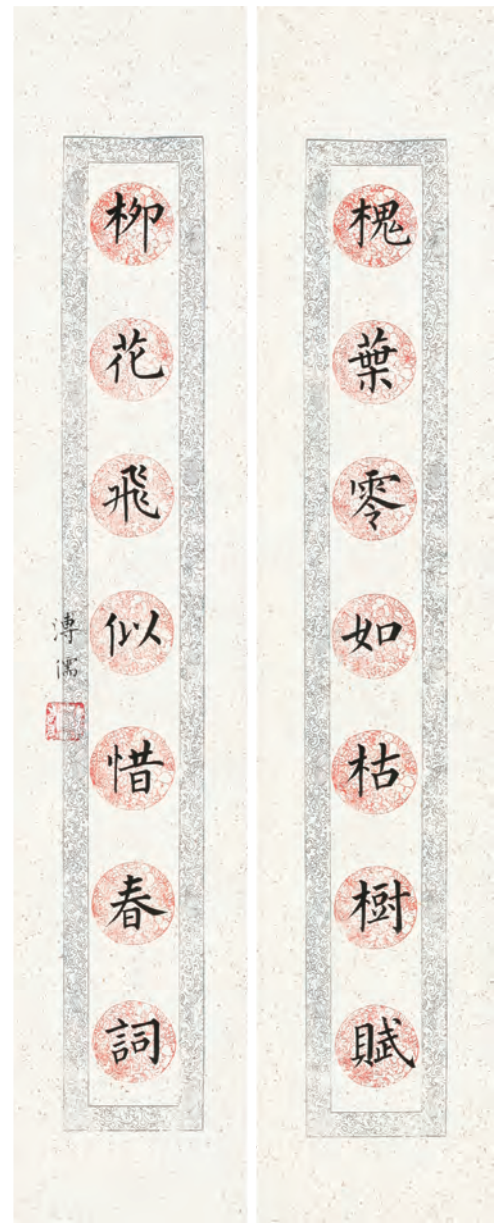 槐葉零如枯樹賦
柳花飛似惜春詞
溥儒